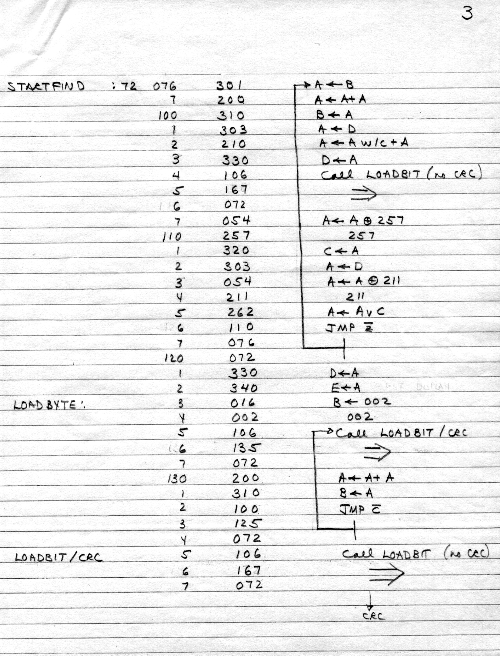 3
STARTFIND : 72 076 301 A ← B
7 200 A ← A+A
100 310 B ← A
1 303 A ← D
2 210 A ← A w/c + A
3 330 D ← A
4 106 Call LOADBIT (no CRC)
5 167 ⇒
6 072
7 054 A ← A ⊕ 257
110 257 257
1 320 C ← A
2 303 A ← D
3 054 A ← A ⊕ 211
4 211 211
5 262 A ← A v C
6 110 JMP z̅
7 076
120 072
1 330 D ← A
2 340 E ← A
LOADBYTE: 3 016 B ← 002
4 002 002
5 106 Call LOADBIT/CRC
6 135 ⇒
7 072
130 200 A ← A+A
1 310 B ← A
2 100 JMP c̅
3 125
4 072
LOADBIT/CRC 5 106 Call LOADBIT (no CRC)
6 167 ⇒
7 072
↓
CRC